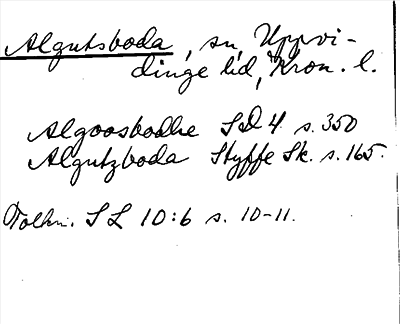 Algutsboda, sn, Uppvi-
dinge hd, Kron. l.
Algoosbodhe SD 4 s. 350
Algutzboda Styffe Sk. s. 165.
Tolkn. SL 10:6 s. 10-11.